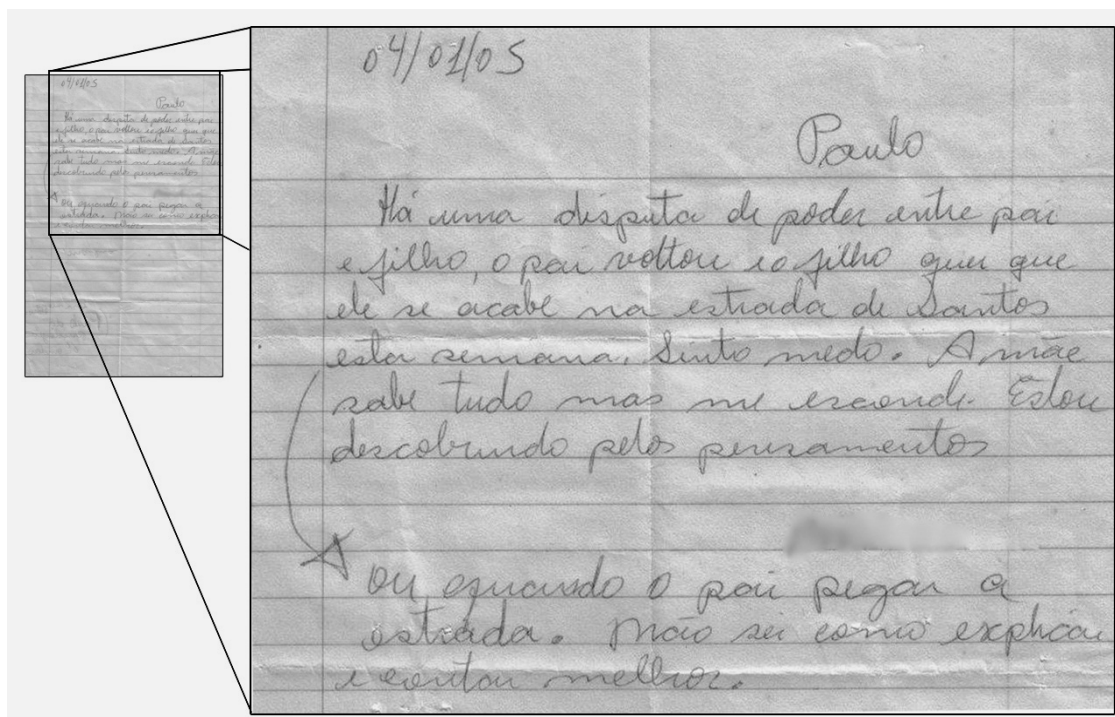 04/01/05
Paulo
Há uma disputa de poder entre pai
e filho, o pai voltou e o filho quer que
ele se acabe na estrada de Santos
esta semana. Sinto medo. A mãe
sabe tudo mas me esconde. Estou
descobrindo pelos pensamentos
ou quando o pai pegar a
estrada. Não sei como explicar
e contar melhor.